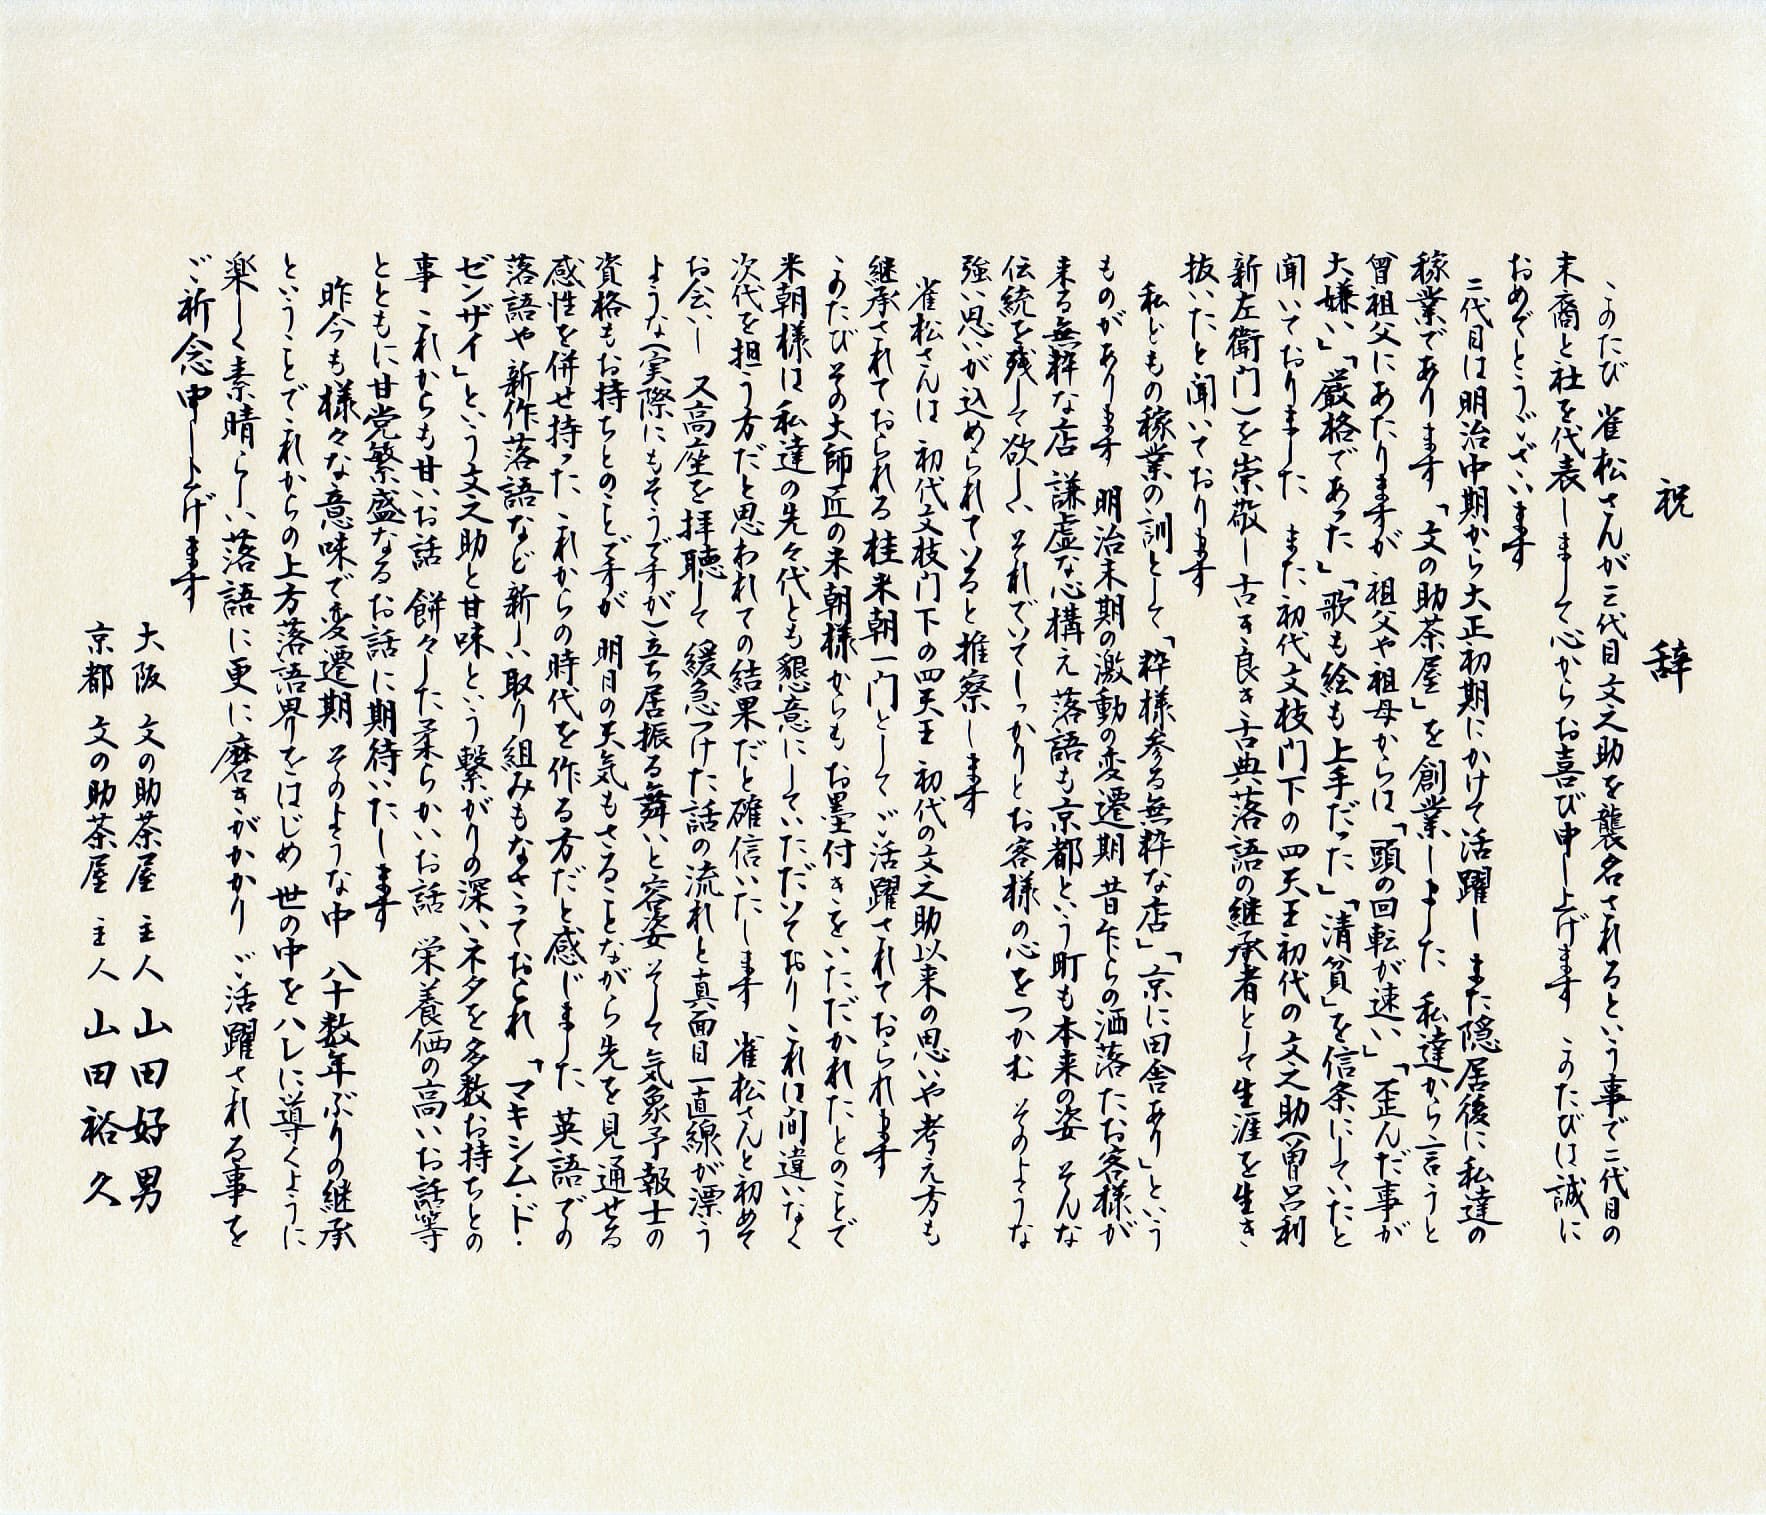 祝 辞
このたび 雀松さんが三代目文之助を襲名されるという事で二代目の
末裔と社を代表しまして心からお喜び申し上げます このたびは誠に
おめでとうございます
二代目は明治中期から大正初期にかけて活躍し また隠居後に私達の
稼業であります「文の助茶屋」を創業しました 私達から言うと
曾祖父にあたりますが 祖父や祖母からは「頭の回転が速い」「歪んだ事が
大嫌い」「厳格であった」「歌も絵も上手だった」「清貧」を信条にしていたと
聞いておりました また初代文枝門下の四天王初代の文之助(曽呂利
新左衛門)を崇敬し古き良き古典落語の継承者として生涯を生き
抜いたと聞いております
私どもの稼業の訓として「粋様参る無粋な店」「京に田舎あり」という
ものがあります 明治末期の激動の変遷期 昔乍らの洒落たお客様が
来る無粋な店 謙虚な心構え 落語も京都という町も本来の姿 そんな
伝統を残して欲しい それでいてしっかりとお客様の心をつかむ そのような
強い思いが込められていると推察します
雀松さんは 初代文枝門下の四天王 初代の文之助以来の思いや考え方も
継承されておられる桂米朝一門として ご活躍されておられます
このたびその大師匠の米朝様からもお墨付きをいただかれたとのことで
米朝様は私達の先々代とも懇意にしていただいており これは間違いなく
次代を担う方だと思われての結果だと確信いたします 雀松さんと初めて
お会いし 又高座を拝聴して 緩急つけた話の流れと真面目一直線が漂う
ような(実際にもそうですが)立ち居振る舞いと容姿 そして気象予報士の
資格もお持ちとのことですが 明日の天気もさることながら先を見通せる
感性を併せ持った これからの時代を作る方だと感じました 英語での
落語や新作落語など新しい取り組みもなさっておられ「マキシム・ド・
ゼンザイ」という文之助と甘味という繋がりの深いネタを多数お持ちとの
事 これからも甘いお話 餅々した柔らかいお話 栄養価の高いお話等
とともに甘党繁盛なるお話に期待いたします
昨今も様々な意味で変遷期 そのような中 八十数年ぶりの継承
ということでこれからの上方落語界をはじめ 世の中をハレに導くように
楽しく素晴らしい落語に更に磨きがかかり ご活躍される事を
ご祈念申し上げます
大阪 文の助茶屋 主人 山田好男
京都 文の助茶屋 主人 山田裕久